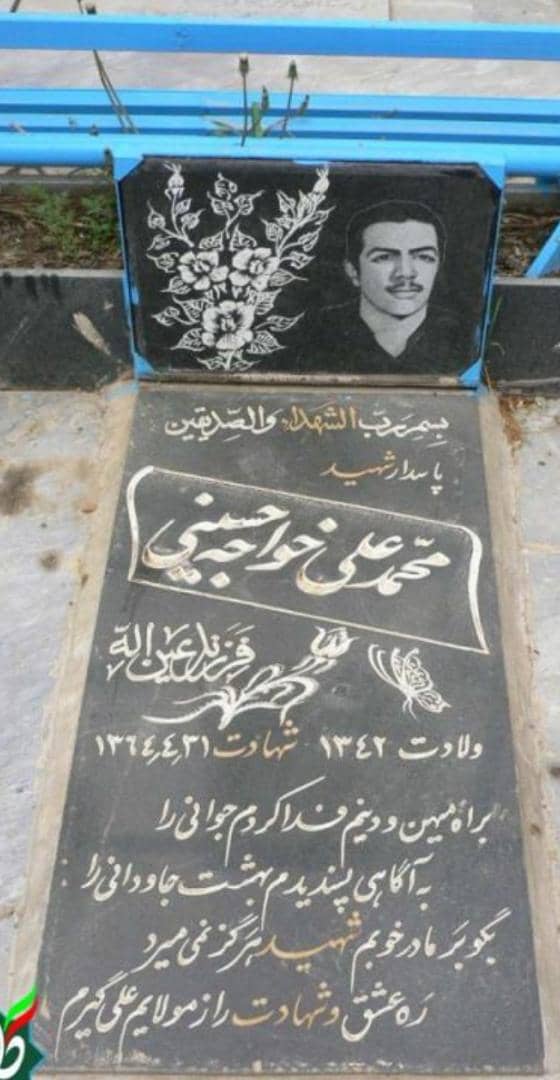 بسم ربّ الشهداء والصدیقین
پاسدار شهید
محمّد علی خواجه حسینی
فرزند عین الله
ولادت ۱۳۴۲ شهادت ۱۳۶۴٫۴٫۳۱
براه میهن و دینم فدا کردم جوانی را
به آگاهی پسندیدم بهشت جاودانی را
بگو بر مادر خوبم شهید هرگز نمی میرد
ره عشق و شهادت را ز مولایم علی گیرم